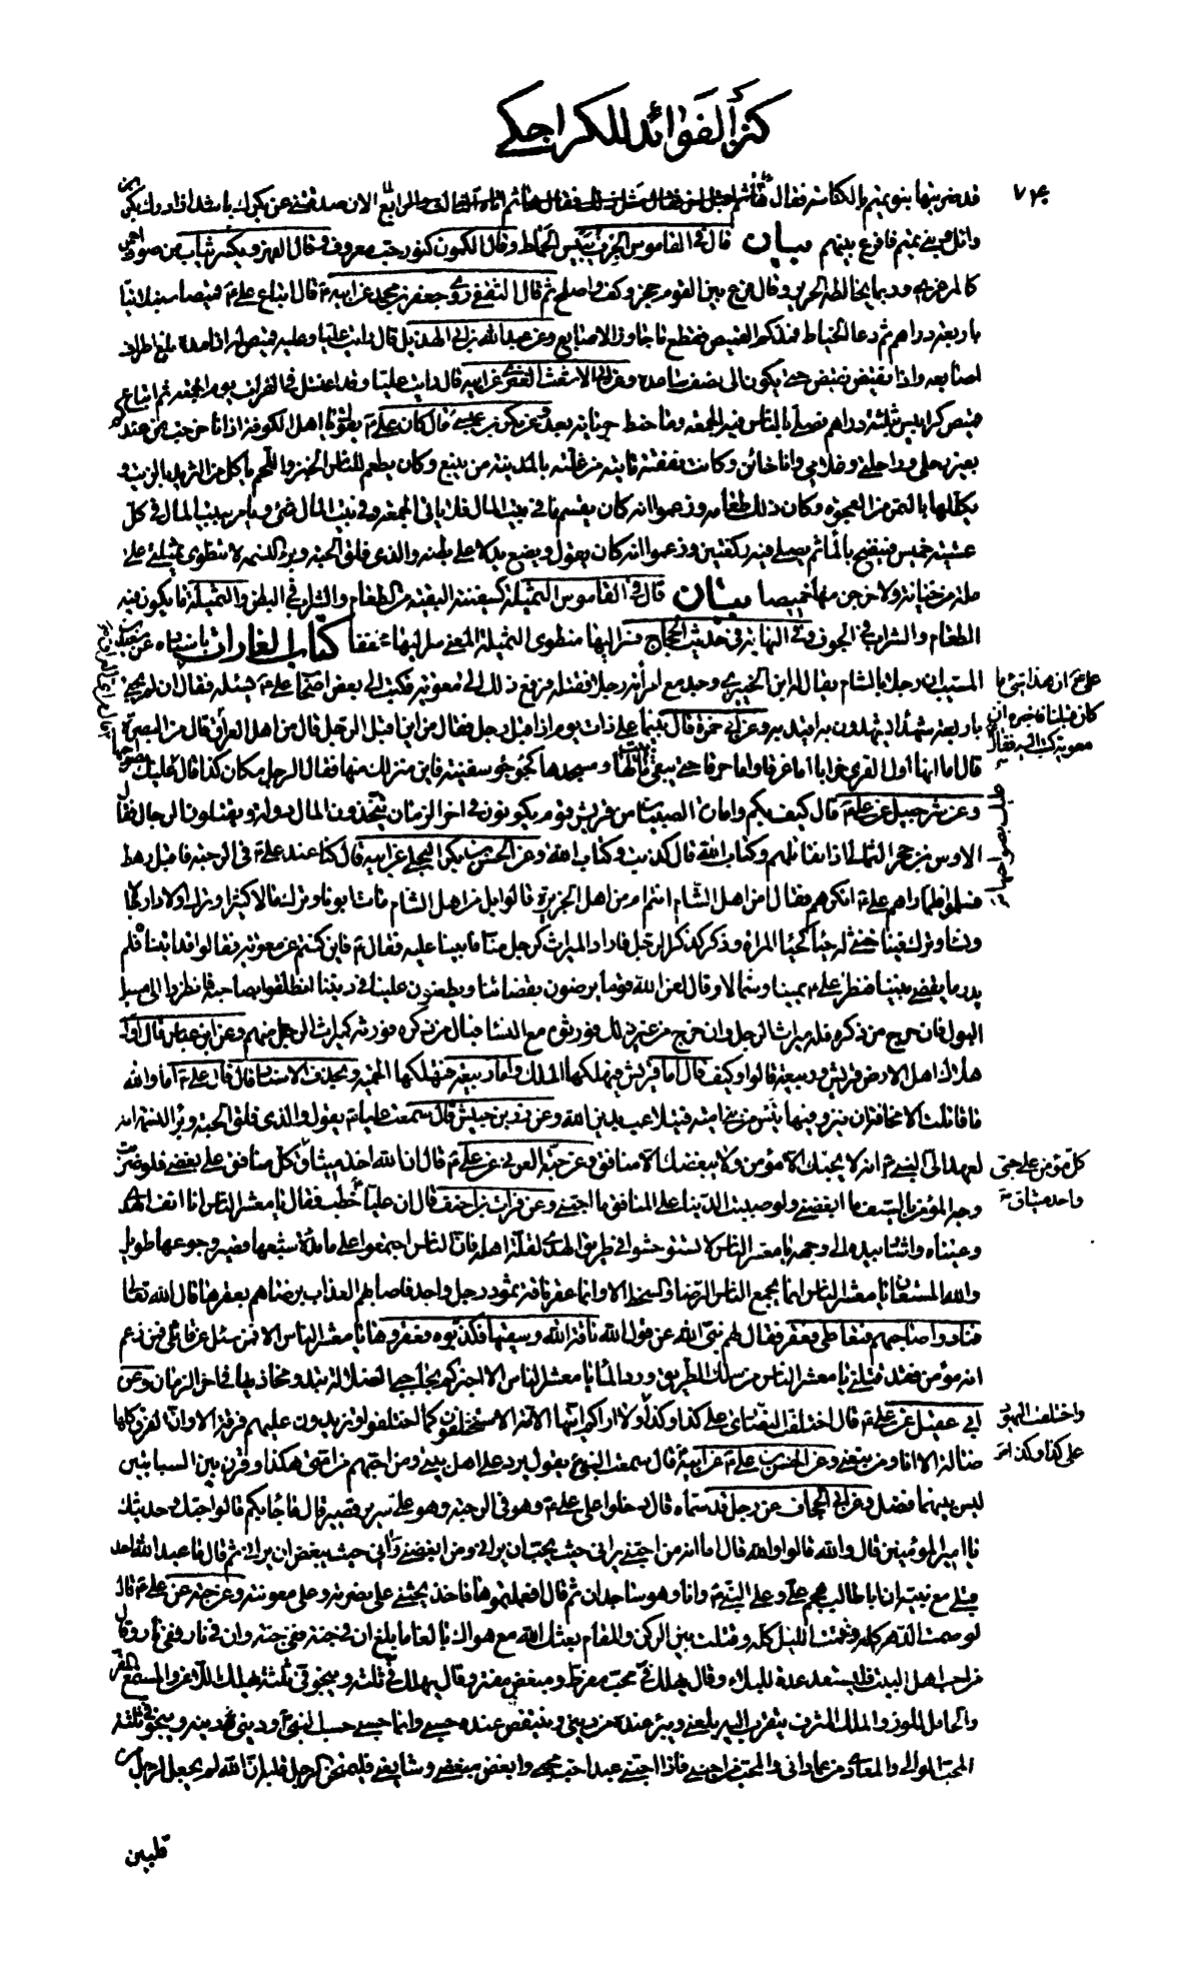 كنز الفوائد للكراجكي
٧٣٤
قد ضربها بنو تميم بالكناسة فقال الان صدقتني عن بكرك يا شد ادرك بكر بن
وائل وبني تميم فافرع بينهم بيان قال في القاموس الحرب وقال الكمون كتنور حب معروف وقال الهروي بكسر ثياب من صوف احمر
كالمرعزى وربما يخالطه الحرير وقال فرع بين القوم حجز وكف واصلح ثم قال الثقفي روي جعفر بن محمد عن ابيه ع قال ابتاع علي ع قميصا سنبلانيا
باربعة دراهم ثم دعا الخياط فمد كم القميص فقطع ما جاوز الاصابع وعن عبد الله بن ابي الهذيل قال رايت عليا وعليه قميص له اذا مده بلغ اطراف
اصابعه واذا تقبض تقبض حتى يكون الى نصف ساعده وعن ابي الاشعث العنزي عن ابيه قال رايت عليا وقد اغتسل في الفرات يوم الجمعة ثم ابتاع
قميص كرابيس بثلثة دراهم فصلى بالناس فيه الجمعة وما خيط جربانه بعد وعن بكر بن عيسى قال كان علي ع يقول يا اهل الكوفة اذا انا خرجت من عندكم
بغير رحلي وراحلتي وغلامي فانا خائن وكانت نفقته تاتيه من غلته بالمدينة من ينبع وكان يطعم الناس الخبز واللحم ويأكل من الثريد بالزيت و
يكللها بالتمر من العجوة وكان ذلك طعامه وزعموا انه كان يقسم ما في بيت المال فلا ياتي الجمعة وفي بيت المال شيء ويامر ببيت المال في كل
عشية خميس فينضح بالماء ثم يصلي فيه ركعتين وزعموا انه كان يقول ويضع يده على بطنه والذي فلق الحبة وبرأ النسمة لا تنطوي ثميلتي على
ملة من خيانة ولاخرجن منها خميصا بيان قال في القاموس الثميلة كسفينة البقية من الطعام والشراب في البطن والثميلة ما يكون فيه
الطعام والشراب في الجوف وفي النهاية في حديث الحجاج فسر اليها منطوي الثميلة المعنى سر اليها مخففا كتاب الغارات باسناده عن سعيد بن
المسيب ان رجلا بالشام يقال له ابن الخيبري وجد مع امرأته رجلا فقتله فرفع ذلك الى معوية فكتب الى بعض اصحاب علي ع يسئله فقال ان لم يجئ
علي ع ان هذا شيء ما
كان قبلنا فاخبره ان
معوية كتب اليه فقال
باربعة شهداء يشهدون به اقيد به وعن ابي حمزة قال بينما علي ذات يوم اذ اقبل رجل فقال من اين اقبل الرجل قال من اهل العراق قال من البصرة
قال اما انها اول القرى خرابا اما غرقا واما حرقا حتى يبقى بيت مالها ومسجدها كجؤجؤ سفينة فاين منزلك منها فقال الرجل مكان كذا قال عليك
بضواحيها
وعن شرحبيل عن علي ع قال كيف بكم وامارة الصبيان من قريش قوم يكونون في اخر الزمان يتخذون المال دولة ويقتلون الرجال فقال
الاوس بن حجر الثمالي اذا نقاتلهم وكتاب الله قال كذبت وكتاب الله وعن الحسن بن بكر البجلي عن ابيه قال كنا عند علي ع في الرحبة فاقبل رهط
فسلموا فلما راهم علي ع انكرهم فقال امن اهل الشام انتم ام من اهل الجزيرة قالوا بل من اهل الشام مات ابونا وترك مالا كثيرا وترك اولادا رجالا
ونساء وترك فينا خنثى له حيا كحيا المرأة وذكر كذكر الرجل فاراد الميراث كرجل منا فابينا عليه فقال ع فاين كنتم عن معوية فقالوا قد اتيناه فلم
يدر ما يقضي بيننا فنظر علي ع يمينا وشمالا وقال لعن الله قوما يرضون بقضائنا ويطعنون علينا في ديننا انطلقوا بصاحبكم فانظروا الى مسيل
البول فان خرج من ذكره فله ميراث الرجل وان خرج من غير ذلك فورثوه مع النساء فبال من ذكره فورثه كميراث الرجل منهم وعن ابن عباس قال اول
هلاك اهل الارض قريش وربيعة قالوا وكيف قال اما قريش فيهلكها الملك واما ربيعة فتهلكها الحمية وبحذف الاسناد قال قال علي ع اما والله
ما قاتلت الا مخافة ان ينزو فيها تيس من بني امية فيتلاعب بدين الله وعن زر بن حبيش قال سمعت عليا ع يقول والذي فلق الحبة وبرأ النسمة انه
لعهد الى النبي ص انه لا يحبك الا مؤمن ولا يبغضك الا منافق وعن حبة العرني عن علي ع قال ان الله اخذ ميثاق كل منافق على بغضي فلو ضربت
كل مؤمن على حبي
واخذ ميثاق
وجه المؤمن بالسيف ما ابغضني ولو صببت الدنيا على المنافق ما احبني وعن فرات بن احنف قال ان عليا ع خطب فقال يا معشر الناس انا انف الهدى
وعيناه واشار بيده الى وجهه يا معشر الناس لا تستوحشوا في طريق الهدى لقلة اهله فان الناس اجتمعوا على مائدة شبعها قصير وجوعها طويل
والله المستعان يا معشر الناس انما يجمع الناس الرضا والسخط الا وانما عقر ناقة ثمود رجل واحد فاصابهم العذاب برضاهم بعقرها قال الله تعالى
فنادوا صاحبهم فتعاطى فعقر فقال لهم نبي الله عن قول الله ناقة الله وسقياها فكذبوه فعقروها يا معشر الناس الا فمن سئل عن قاتلي فمن زعم
انه مؤمن فقد قتلني يا معشر الناس من سلك الطريق ورد الماء يا معشر الناس الا اخبركم بحاجبي الضلالة تبدو مخازيها في اخر الزمان وعن
ابي عقيل عن علي ع قال اختلفت النصارى على كذا وكذا ولا اراكم ايتها الامة الا ستختلفون كما اختلفوا وتزيدون عليهم فرقة الا وان الفرق كلها
واختلفت اليهود
على كذا وكذا
ضالة الا انا ومن تبعني وعن الحسن بن علي ع عن ابيه قال سمعت النبي ص يقول يرد علي اهل بيتي ومن احبهم من امتي هكذا وقرن بين السبابتين
ليس بينهما فضل وعن ابي الجحاف عن رجل قد سماه قال دخلوا على علي ع وهو في الرحبة وهو على سرير قصير قال ما جاء بكم قالوا حبك وحديثك
يا امير المؤمنين قال والله قالوا والله قال اما انه من احبني يراني حيث يحب ان يراني ومن ابغضني رآني حيث يبغض ان يراني ثم قال ما عبد الله احد
قبلي مع نبيه ان ابا طالب هجم علي وعلى النبي ص وانا وهو ساجدان ثم قال افعلتموها فاخذ يحثني على نصرته وعلى معونته وعن حبة عن علي ع قال
لو صمت الدهر كله وقمت الليل كله وقتلت بين الركن والمقام بعثك الله مع هواك بالغا ما بلغ ان في جنة ففي جنة وان في نار ففي نار وقال
من احبنا اهل البيت فليستعد عدة للبلاء وقال يهلك في محب مفرط ومبغض مفتر وقال يهلك في ثلثة وينجو في ثلثة يهلك اللاعن والمستمع المقر
والحامل للوزر والملك المترف يتقرب اليه بلعني ويبرء عنده من ديني وينتقص عنده حسبي وانما حسبي حسب النبي ص وديني دينه وينجو في ثلثة
المحب الموالي والمعادي من عاداني والمحب من احبني فاذا احبني عبد احب محبي وابغض مبغضي وشايعني فليمتحن الرجل قلبه ان الله لم يجعل لرجل من
قلبين